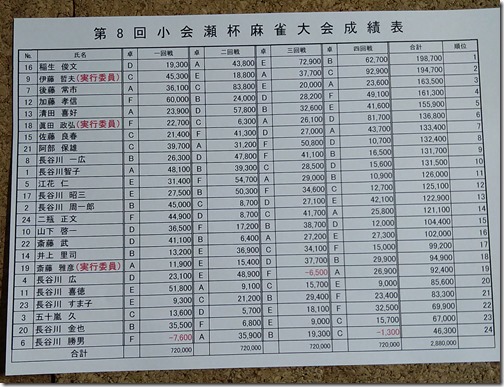 第８回小会瀬杯麻雀大会成績表
№ 氏名 卓 一回戦 卓 二回戦 卓 三回戦 卓 四回戦 合計 順位
16 稲生 俊文 D 19,300 A 43,800 E 72,900 B 62,700 198,700 1
9 伊藤 哲夫(実行委員) C 45,300 E 18,800 A 37,700 C 92,900 194,700 2
7 後藤 常市 A 36,100 C 83,800 E 20,000 A 23,600 163,500 3
12 加藤 孝信 F 60,000 B 24,000 D 28,200 F 49,100 161,300 4
13 清田 喜好 A 23,900 D 57,800 B 32,600 E 41,600 155,900 5
18 眞田 政弘(実行委員) F 22,700 C 6,300 A 26,100 D 81,700 136,800 6
15 佐藤 良春 C 21,400 F 41,300 D 27,000 A 43,700 133,400 7
21 阿部 保雄 C 39,700 A 31,200 F 50,800 D 10,700 132,400 8
8 長谷川 一広 B 26,300 D 47,800 F 41,100 B 16,500 131,700 9
1 長谷川智子 A 48,100 B 39,300 C 28,500 D 15,600 131,500 10
5 江花 仁 E 31,400 F 54,700 A 29,000 B 10,900 126,000 11
17 長谷川 昭三 B 27,500 B 50,300 F 34,600 C 12,700 125,100 12
2 長谷川 周一郎 B 45,000 C 8,700 D 27,100 E 42,100 122,900 13
24 二瓶 正文 F 44,900 D 8,700 C 41,700 A 25,800 121,100 14
10 山下 啓一 D 36,500 F 17,200 B 38,700 D 12,000 104,400 15
22 斎藤 武 D 41,100 B 6,400 A 27,200 E 27,300 102,000 16
14 井上 里司 B 13,200 E 36,900 C 34,100 F 15,000 99,200 17
19 斎藤 雅彦(実行委員) A 11,900 E 15,400 D 37,700 B 29,900 94,900 18
4 長谷川 広 D 23,100 E 48,900 F -6,500 A 26,900 92,400 19
11 長谷川 喜徳 E 51,800 A 9,100 C 15,700 E 9,000 85,600 20
23 長谷川 すま子 E 9,300 C 21,200 B 29,400 F 23,400 83,300 21
3 五十嵐 久 C 13,600 D 5,700 E 18,100 F 32,500 69,900 22
20 長谷川 金也 B 35,500 F 6,800 E 9,000 C 15,700 67,000 23
6 長谷川 勝男 F -7,600 A 35,900 B 19,300 C -1,300 46,300 24
合計 720,000 720,000 720,000 720,000 2,880,000